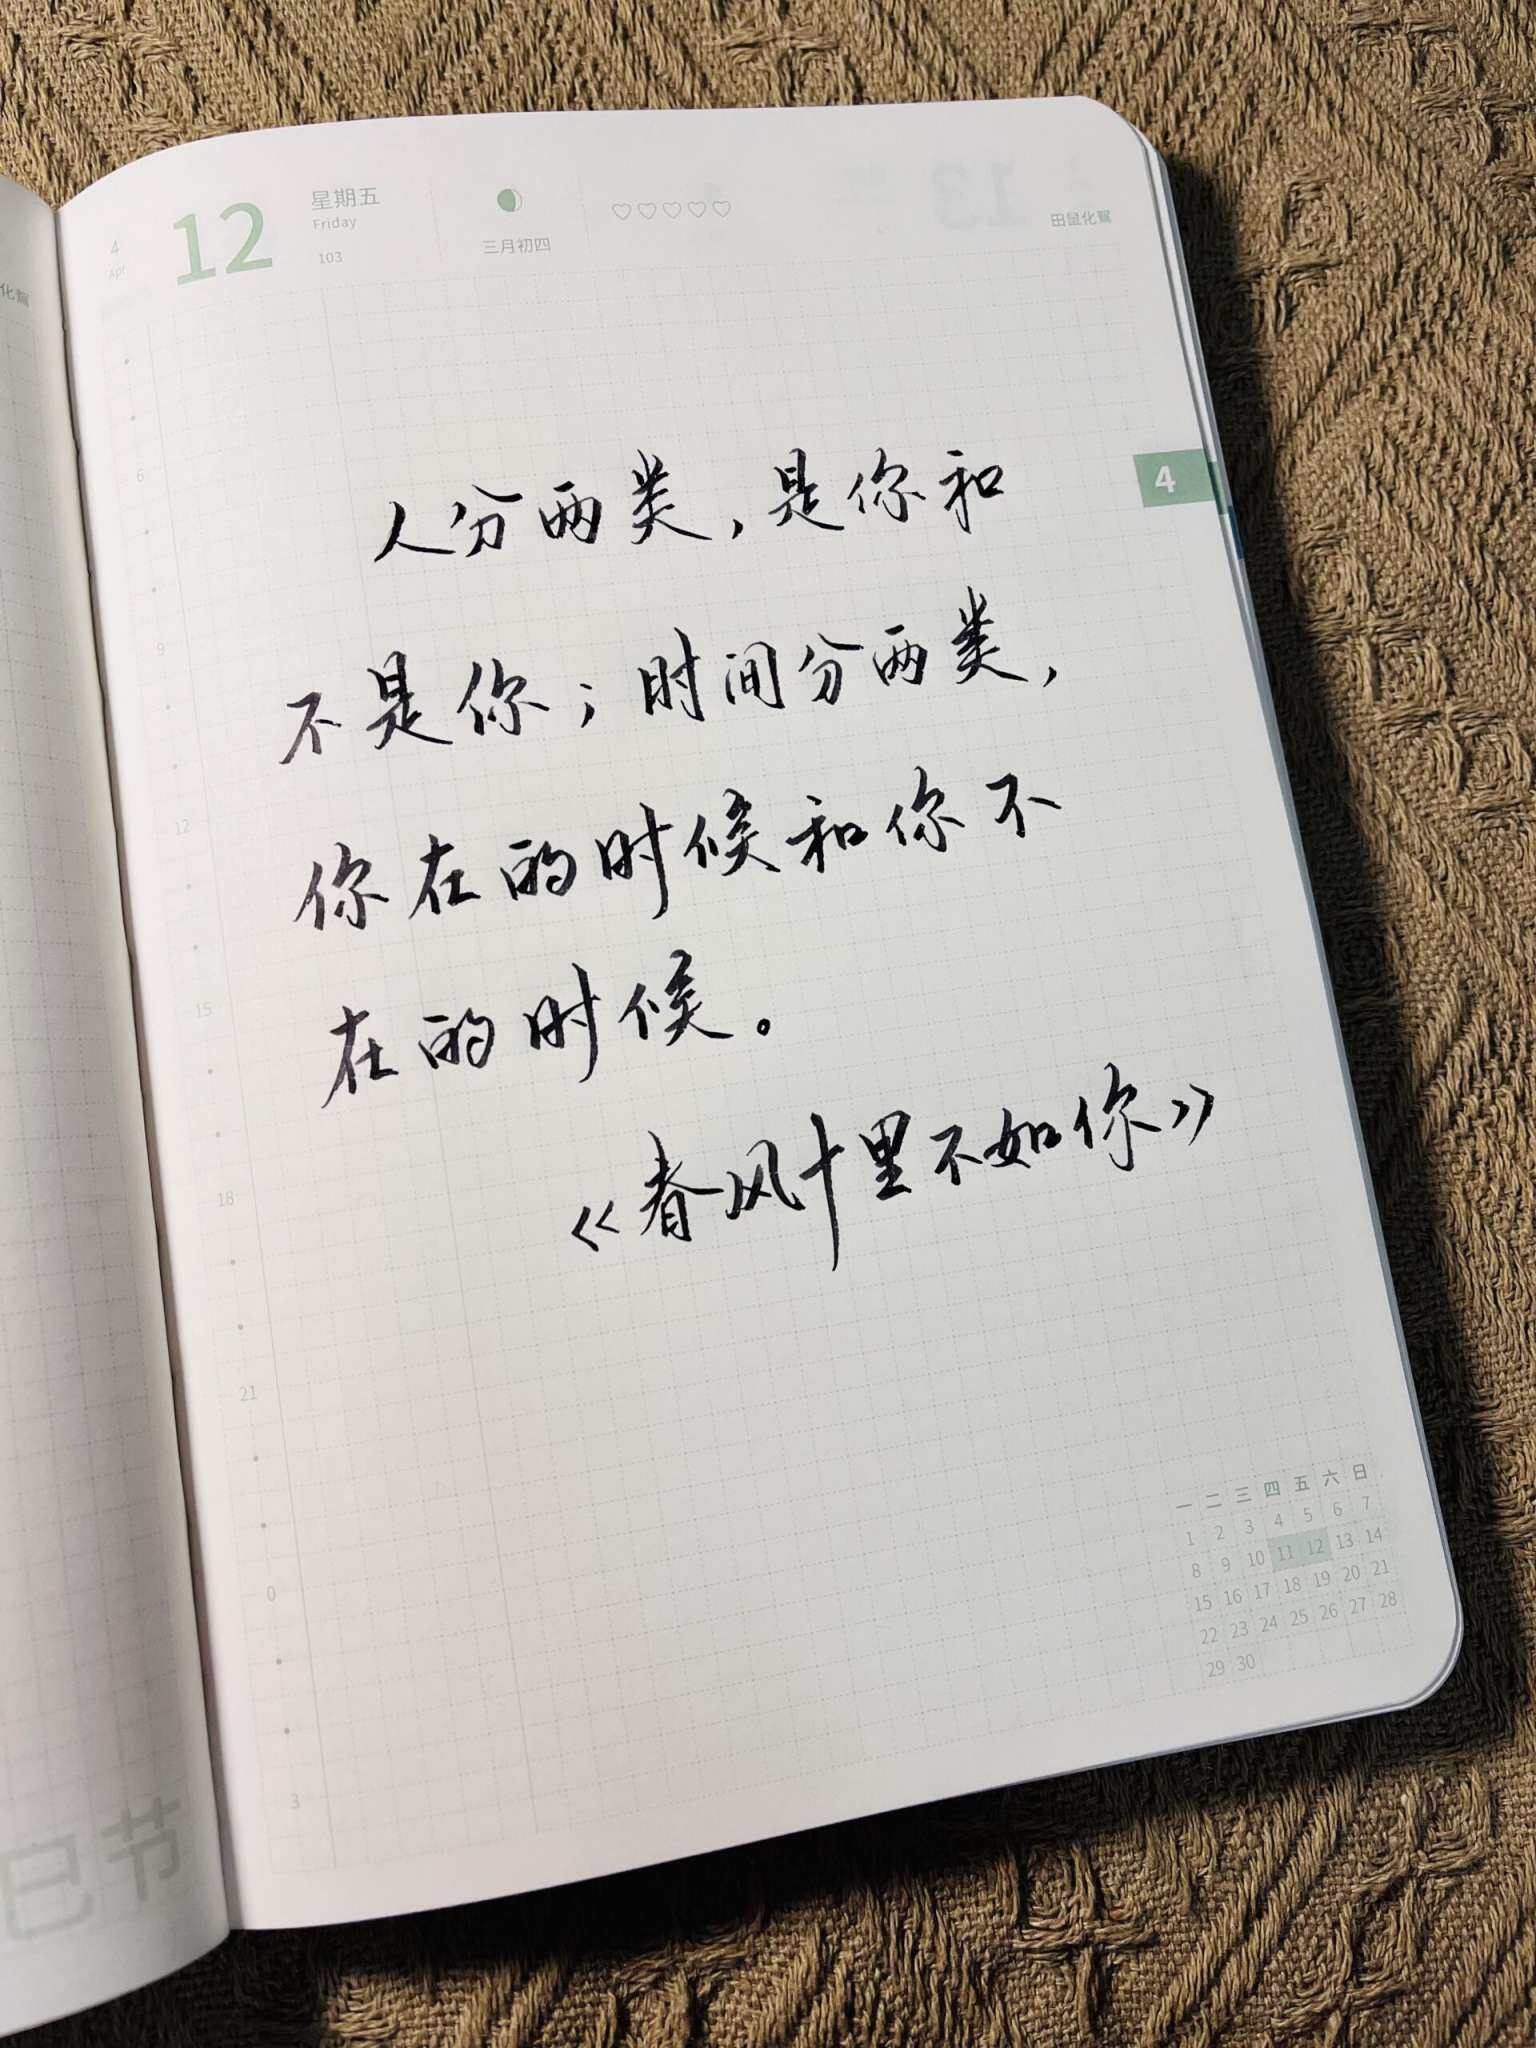 4
Apr
12
星期五
Friday
103
三月初四
田鼠化鴽
化鴽
4
人分两类，是你和
不是你；时间分两类，
你在的时候和你不
在的时候。
《春风十里不如你》
6
9
12
15
18
21
0
3
一 二 三 四 五 六 日
1 2 3 4 5 6 7
8 9 10 11 12 13 14
15 16 17 18 19 20 21
22 23 24 25 26 27 28
29 30
巳节